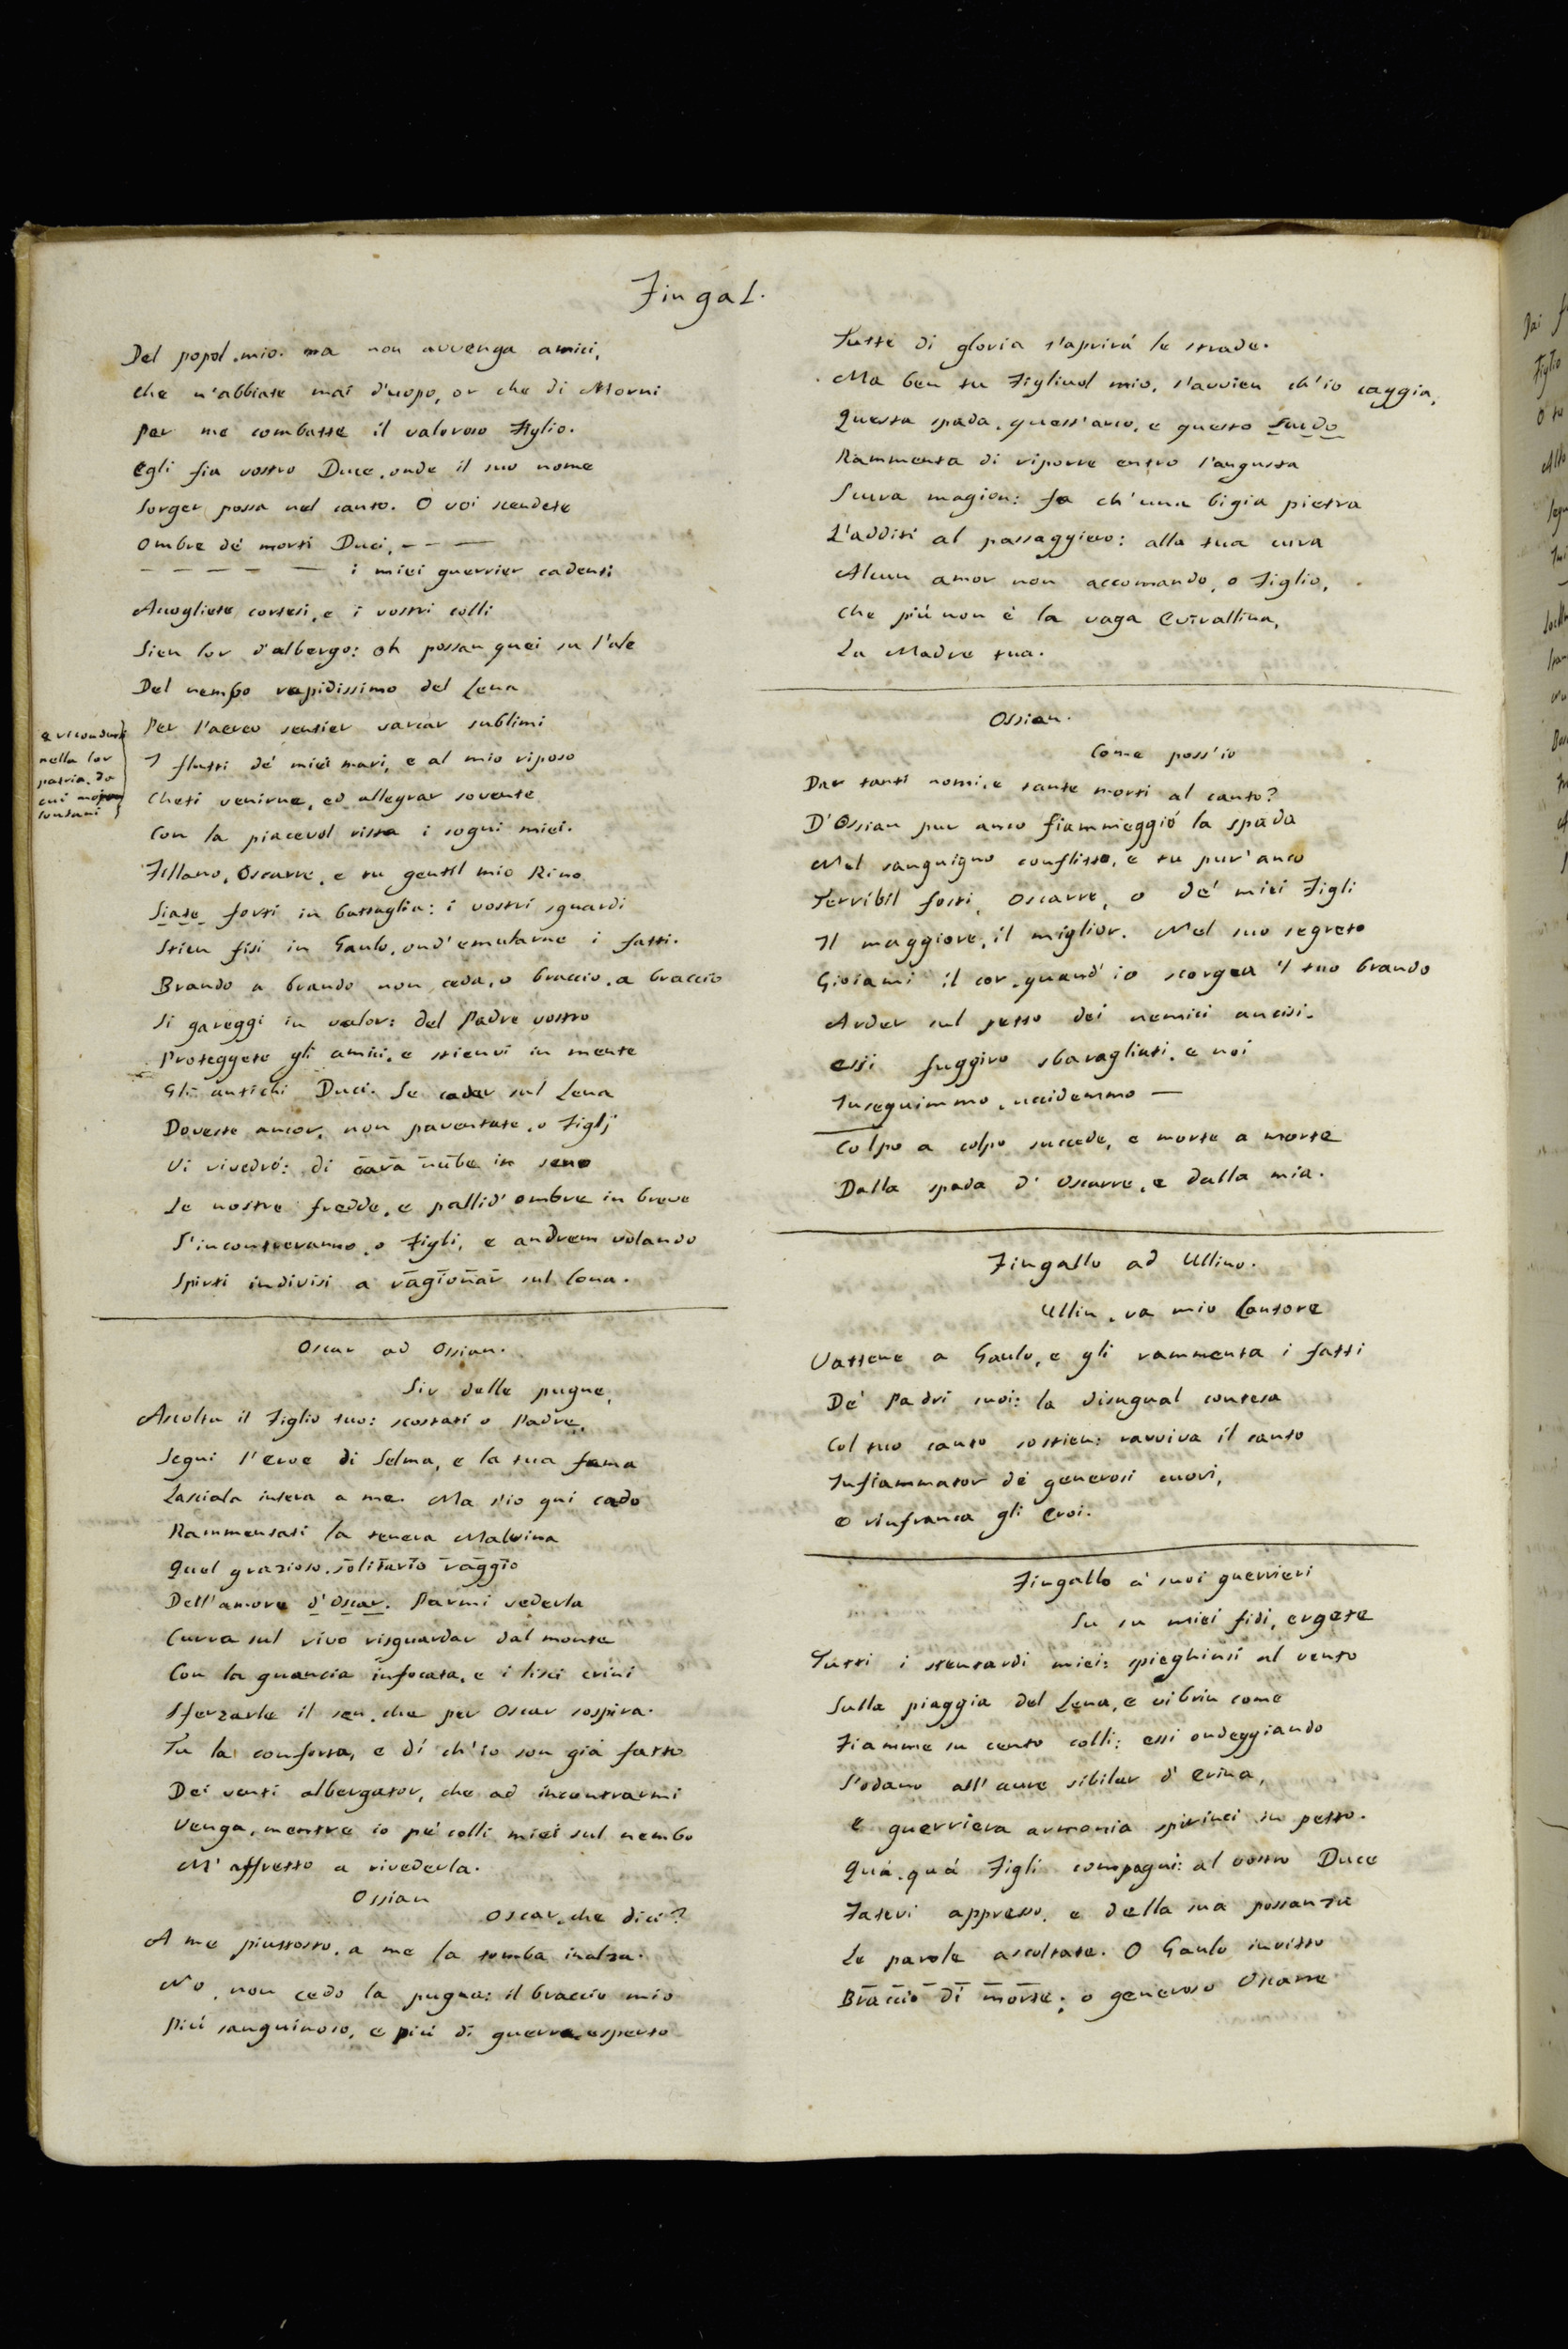 Fingal.
Del popol mio. ma non avvenga amici,
Che n'abbiate mai d'uopo, or che di Morni
Per me combatte il valoroso Figlio.
Egli fia vostro Duce, onde il suo nome
Sorger possa nel canto. O voi scendete
Ombre de' morti Duci, - - -
- - - - - i miei guerrier cadenti
Accogliete cortesi, e i vostri colli
Sien lor d'albergo: oh possan quei su l'ale
Del nembo rapidissimo del Lena
Per l'aereo sentier varcar sublimi
I flutti de' miei mari, e al mio riposo
Cheti venirne, ed allegrar sovente
Con la piacevol vista i sogni miei.
Fillano, Oscarre, e tu gentil mio Rino
Siate forti in battaglia: i vostri sguardi
Stien fisi in Gaulo, ond'emularne i fatti.
Brando a brando non ceda, o braccio, a braccio
Si gareggi in valor: del Padre vostro
Proteggete gli amici, e stienvi in mente
Gli antichi Duci. Se cader sul Lena
Doveste ancor, non paventate, o Figlj
Vi rivedrò: di cava nube in seno
Le nostre fredde, e pallid' ombre in breve
S'incontreranno, o Figli, e andrem volando
Spirti indivisi a ragionar sul Cona.
nella lor
patria, da
cui
lontani
Oscar ad Ossian.
Sir delle pugne,
Ascolta il Figlio tuo: scostati o Padre,
Segui l'Eroe di Selma, e la tua fama
Lasciala intera a me. Ma s'io qui cado
Rammentati la tenera Malvina
Quel grazioso solitario raggio
Dell'amore d'Oscar. Parmi vederla
Curva sul rivo risguardar dal monte
Con la guancia infocata, e i lisci crini
Sferzarle il sen, che per Oscar sospira.
Tu la conforta, e dì ch'io son già fatto
Dei venti albergator, che ad incontrarmi
Venga, mentre io pe' colli miei sul nembo
M'affretto a rivederla.
Ossian
Oscar, che dici?
A me piuttosto, a me la tomba inalza.
No, non cedo la pugna: il braccio mio
Più sanguinoso, e più di guerra esperto
Tutte di gloria t'aprirà le strade.
Ma ben tu Figliuol mio, s'avvien ch'io caggia,
Questa spada, quest'arco, e questo
Rammenta di riporre entro l'angusta
Scura magion: fa ch'una bigia pietra
L'additi al passaggiero: alla tua cura
Alcun amor non accomando, o Figlio,
Che più non è la vaga Evirallina,
La Madre tua.
Ossian.
Come poss'io
Dar tanti nomi, e tante morti al canto?
D'Ossian pur anco fiammeggiò la spada
Nel sanguigno conflitto, e tu pur'anco
Terribil fosti, Oscarre, o de' miei Figli
Il maggiore, il miglior. Nel suo segreto
Gioiami il cor, quand' io scorgea 'l tuo brando
Arder sul petto dei nemici ancisi.
Essi fuggiro sbaragliati, e noi
Inseguimmo, uccidemmo —
Colpo a colpo succede, e morte a morte
Dalla spada d' Oscarre, e dalla mia.
Fingallo ad Ullino.
Ullin, va mio Cantore
Vattene a Gaulo, e gli rammenta i fatti
De' Padri suoi: la disugual contesa
Col tuo canto sostien: ravviva il canto
Infiammator de' generosi cuori,
e rinfranca gli Eroi.
Fingallo a' suoi guerrieri
Su su miei fidi, ergete
Tutti i stentardi miei: spieghinsi al vento
Sulla piaggia del Lena, e vibrin come
Fiamme su cento colli: essi ondeggiando
S'odano all'aure sibilar d' Erina,
e guerriera armonia spirinci in petto.
Quà, quà Figli compagni: al vostro Duce
Fatevi appresso, e della sua possanza
Le parole ascoltate. O Gaulo invitto
Braccio di morte; o generoso Oscarre